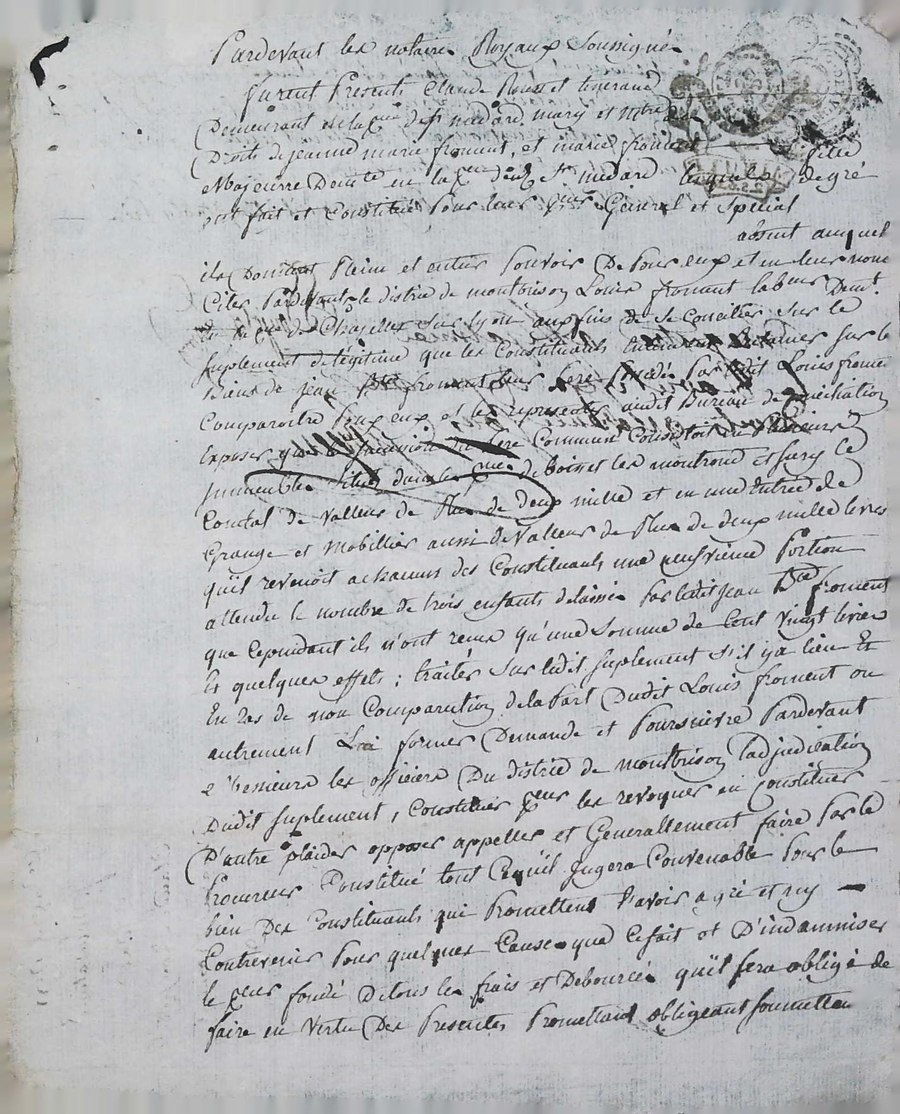 Pardevant les notaires Royaux Soussignés
furent Presents Claude Rousset tisserand
Demeurant en la parr de St medard mary et m^tre Des
Droits de jeanne marie froment, et marie froment fille
Majeure Dem^te en la p^sse dud^t St medard lesquels de gré
ont fait et Constitué Pour leur p^eur Général et Spécial
absent auquel
ils Donnent Plein et entier Pouvoir De Pour eux et en leur nom
Citer Pardevant le district de montbrison Louis froment lab^eur Dem^t.
en la p^sse de Chazelles Sur lyon aux fins de Se Concilier Sur le
Suplement de légitime que les Constituants Entendent Reclamer Sur les
Biens de jean B^te froment leur Pere Possedés Par ledit Louis froment
Comparoitre Pour eux et les representer audit Bureau de Conciliation
Exposer que la Succession du Pere Commun Consistoit en Plusieurs
immeubles Situés dans les p^sses de boisset les montrond et Sury le
Comtal de valleur de Plus de deux mille et en une Entrée de
Grange et Mobillier aussi de valleur de Plus de deux mille livres
qu'il revenoit a chacuns des Constituants une neufvieme Portion
attendu le nombre de trois enfants délaissés Par ledit jean B^te froment
que Cependant ils n'ont reçus qu'une Somme de Cent Vingt livres
Et quelques effets ; traiter Sur ledit Suplement S'il y a lieu Et
En Cas de non Comparution de la Part Dudit Louis froment ou
autrement Lui former Demande et Poursuivre Pardevant
Messieurs les officiers Du district de montbrison l'adjudication
Dudit Suplement, Constituer p^eur les revoquer en Constituer
D'autre plaider opposer appeller et Generallement faire Par le
Procureur Constitué tout Cequ'il Jugera Convenable Pour le
bien Des Constituants qui Promettent l'avoir a gré et n'y
Contrevenir Pour quelques Causes que Ce soit et D'indamniser
le p^eur fondé De tous les frais et Deboursés qu'il Sera obligé de
faire en Vertu Des Presentes Promettant obligeant Soumettant